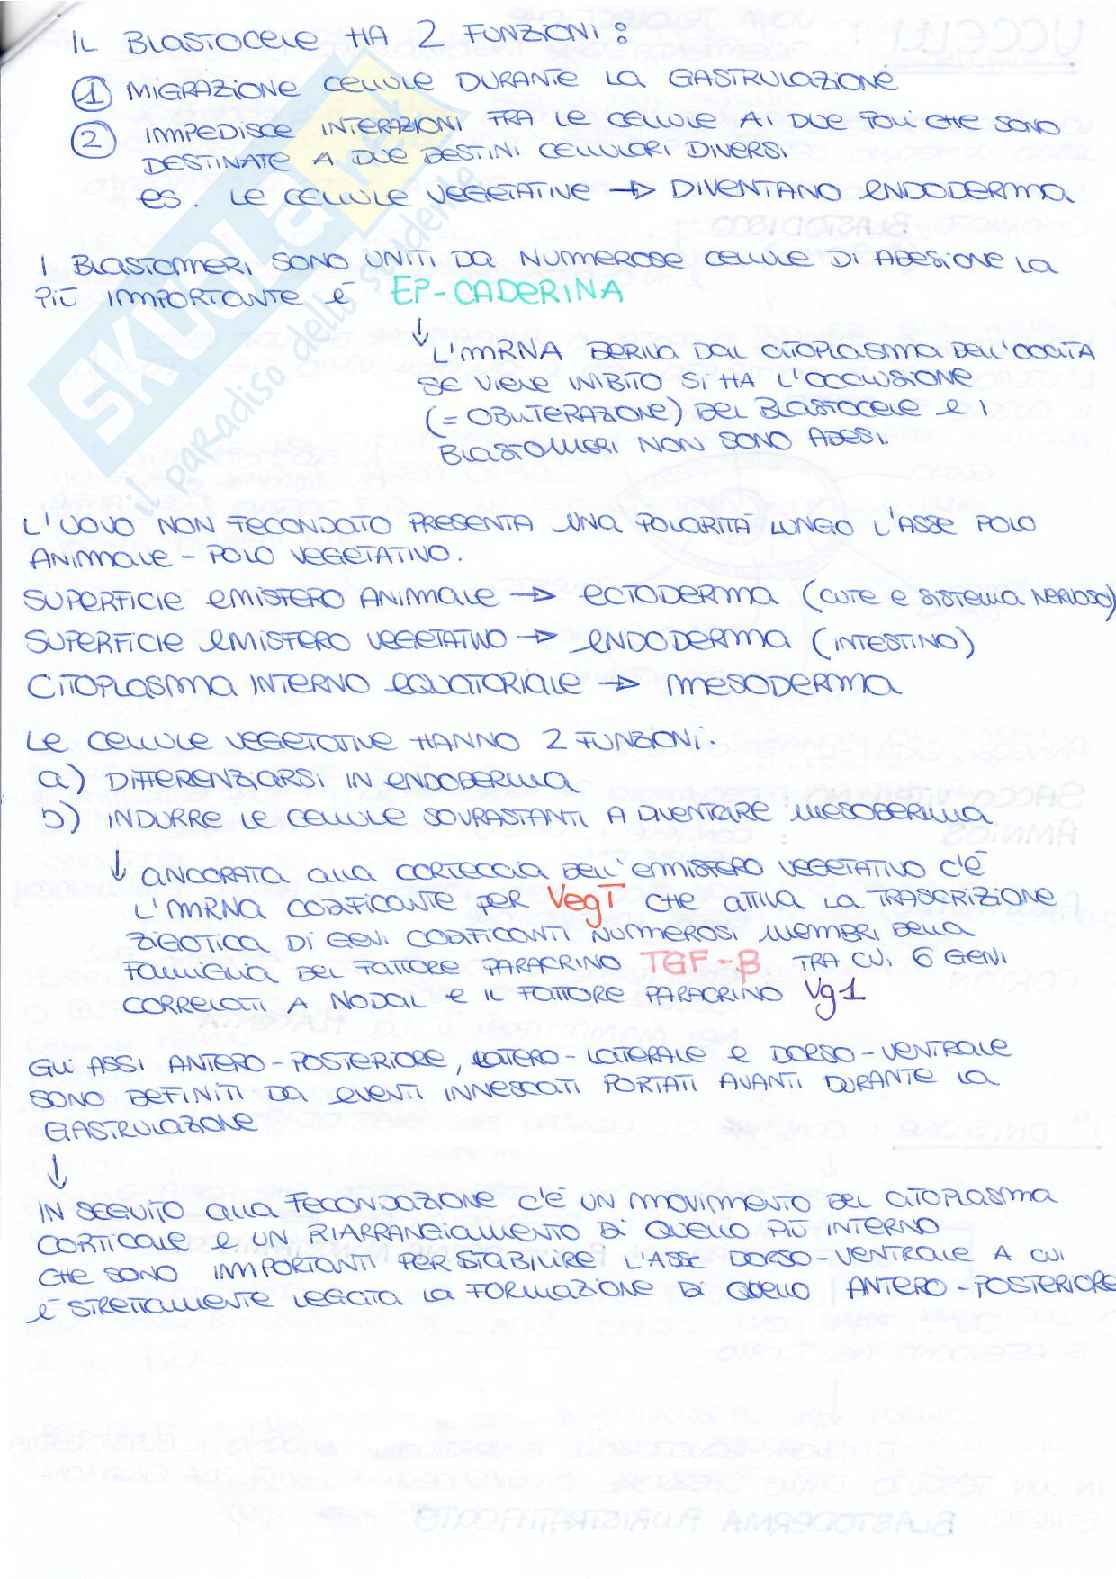 IL BLASTOCELE HA 2 FUNZIONI:
① MIGRAZIONE CELLULE DURANTE LA GASTRULAZIONE
② IMPEDISCE INTERAZIONI TRA LE CELLULE AI DUE POLI CHE SONO
DESTINATE A DUE DESTINI CELLULARI DIVERSI
es. LE CELLULE VEGETATIVE → DIVENTANO ENDODERMA
I BLASTOMERI SONO UNITI DA NUMEROSE CELLULE DI ADESIONE LA
PIÙ IMPORTANTE È EP-CADERINA
↓
L'mRNA DERIVA DAL CITOPLASMA DELL'OOCITA
SE VIENE INIBITO SI HA L'OCCLUSIONE
(= OBLITERAZIONE) DEL BLASTOCELE E I
BLASTOMERI NON SONO ADESI.
SKUOLA.net
il paradiso dello studente
L'UOVO NON FECONDATO PRESENTA UNA POLARITÀ LUNGO L'ASSE POLO
ANIMALE - POLO VEGETATIVO.
SUPERFICIE EMISFERO ANIMALE → ECTODERMA (CUTE E SISTEMA NERVOSO)
SUPERFICIE EMISFERO VEGETATIVO → ENDODERMA (INTESTINO)
CITOPLASMA INTERNO EQUATORIALE → MESODERMA
LE CELLULE VEGETATIVE HANNO 2 FUNZIONI.
a) DIFFERENZIARSI IN ENDODERMA
b) INDURRE LE CELLULE SOVRASTANTI A DIVENTARE MESODERMA
↓ ANCORATA ALLA CORTECCIA DELL'EMISFERO VEGETATIVO C'È
L'mRNA CODIFICANTE PER VegT CHE ATTIVA LA TRASCRIZIONE
ZIGOTICA DI GENI CODIFICANTI NUMEROSI MEMBRI DELLA
FAMIGLIA DEL FATTORE PARACRINO TGF-β TRA CUI 6 GENI
CORRELATI A NODAL E IL FATTORE PARACRINO Vg1
GLI ASSI ANTERO-POSTERIORE, LATERO-LATERALE E DORSO-VENTRALE
SONO DEFINITI DA EVENTI INNESCATI PORTATI AVANTI DURANTE LA
GASTRULAZIONE
↓
IN SEGUITO ALLA FECONDAZIONE C'È UN MOVIMENTO DEL CITOPLASMA
CORTICALE E UN RIARRANGIAMENTO DI QUELLO PIÙ INTERNO
CHE SONO IMPORTANTI PER STABILIRE L'ASSE DORSO-VENTRALE A CUI
È STRETTAMENTE LEGATA LA FORMAZIONE DI QUELLO ANTERO-POSTERIORE